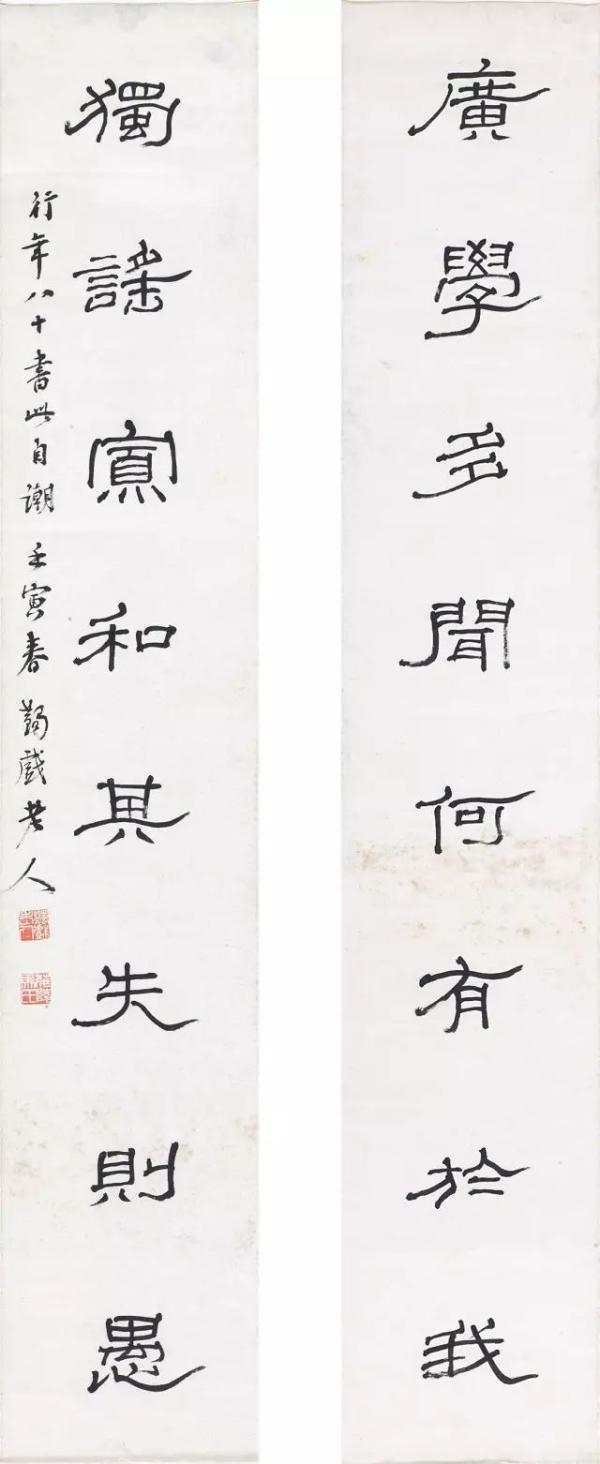 廣學多聞何有於我
獨謡寡和其失則愚
行年八十書此自潮 壬寅春 蠲戲老人